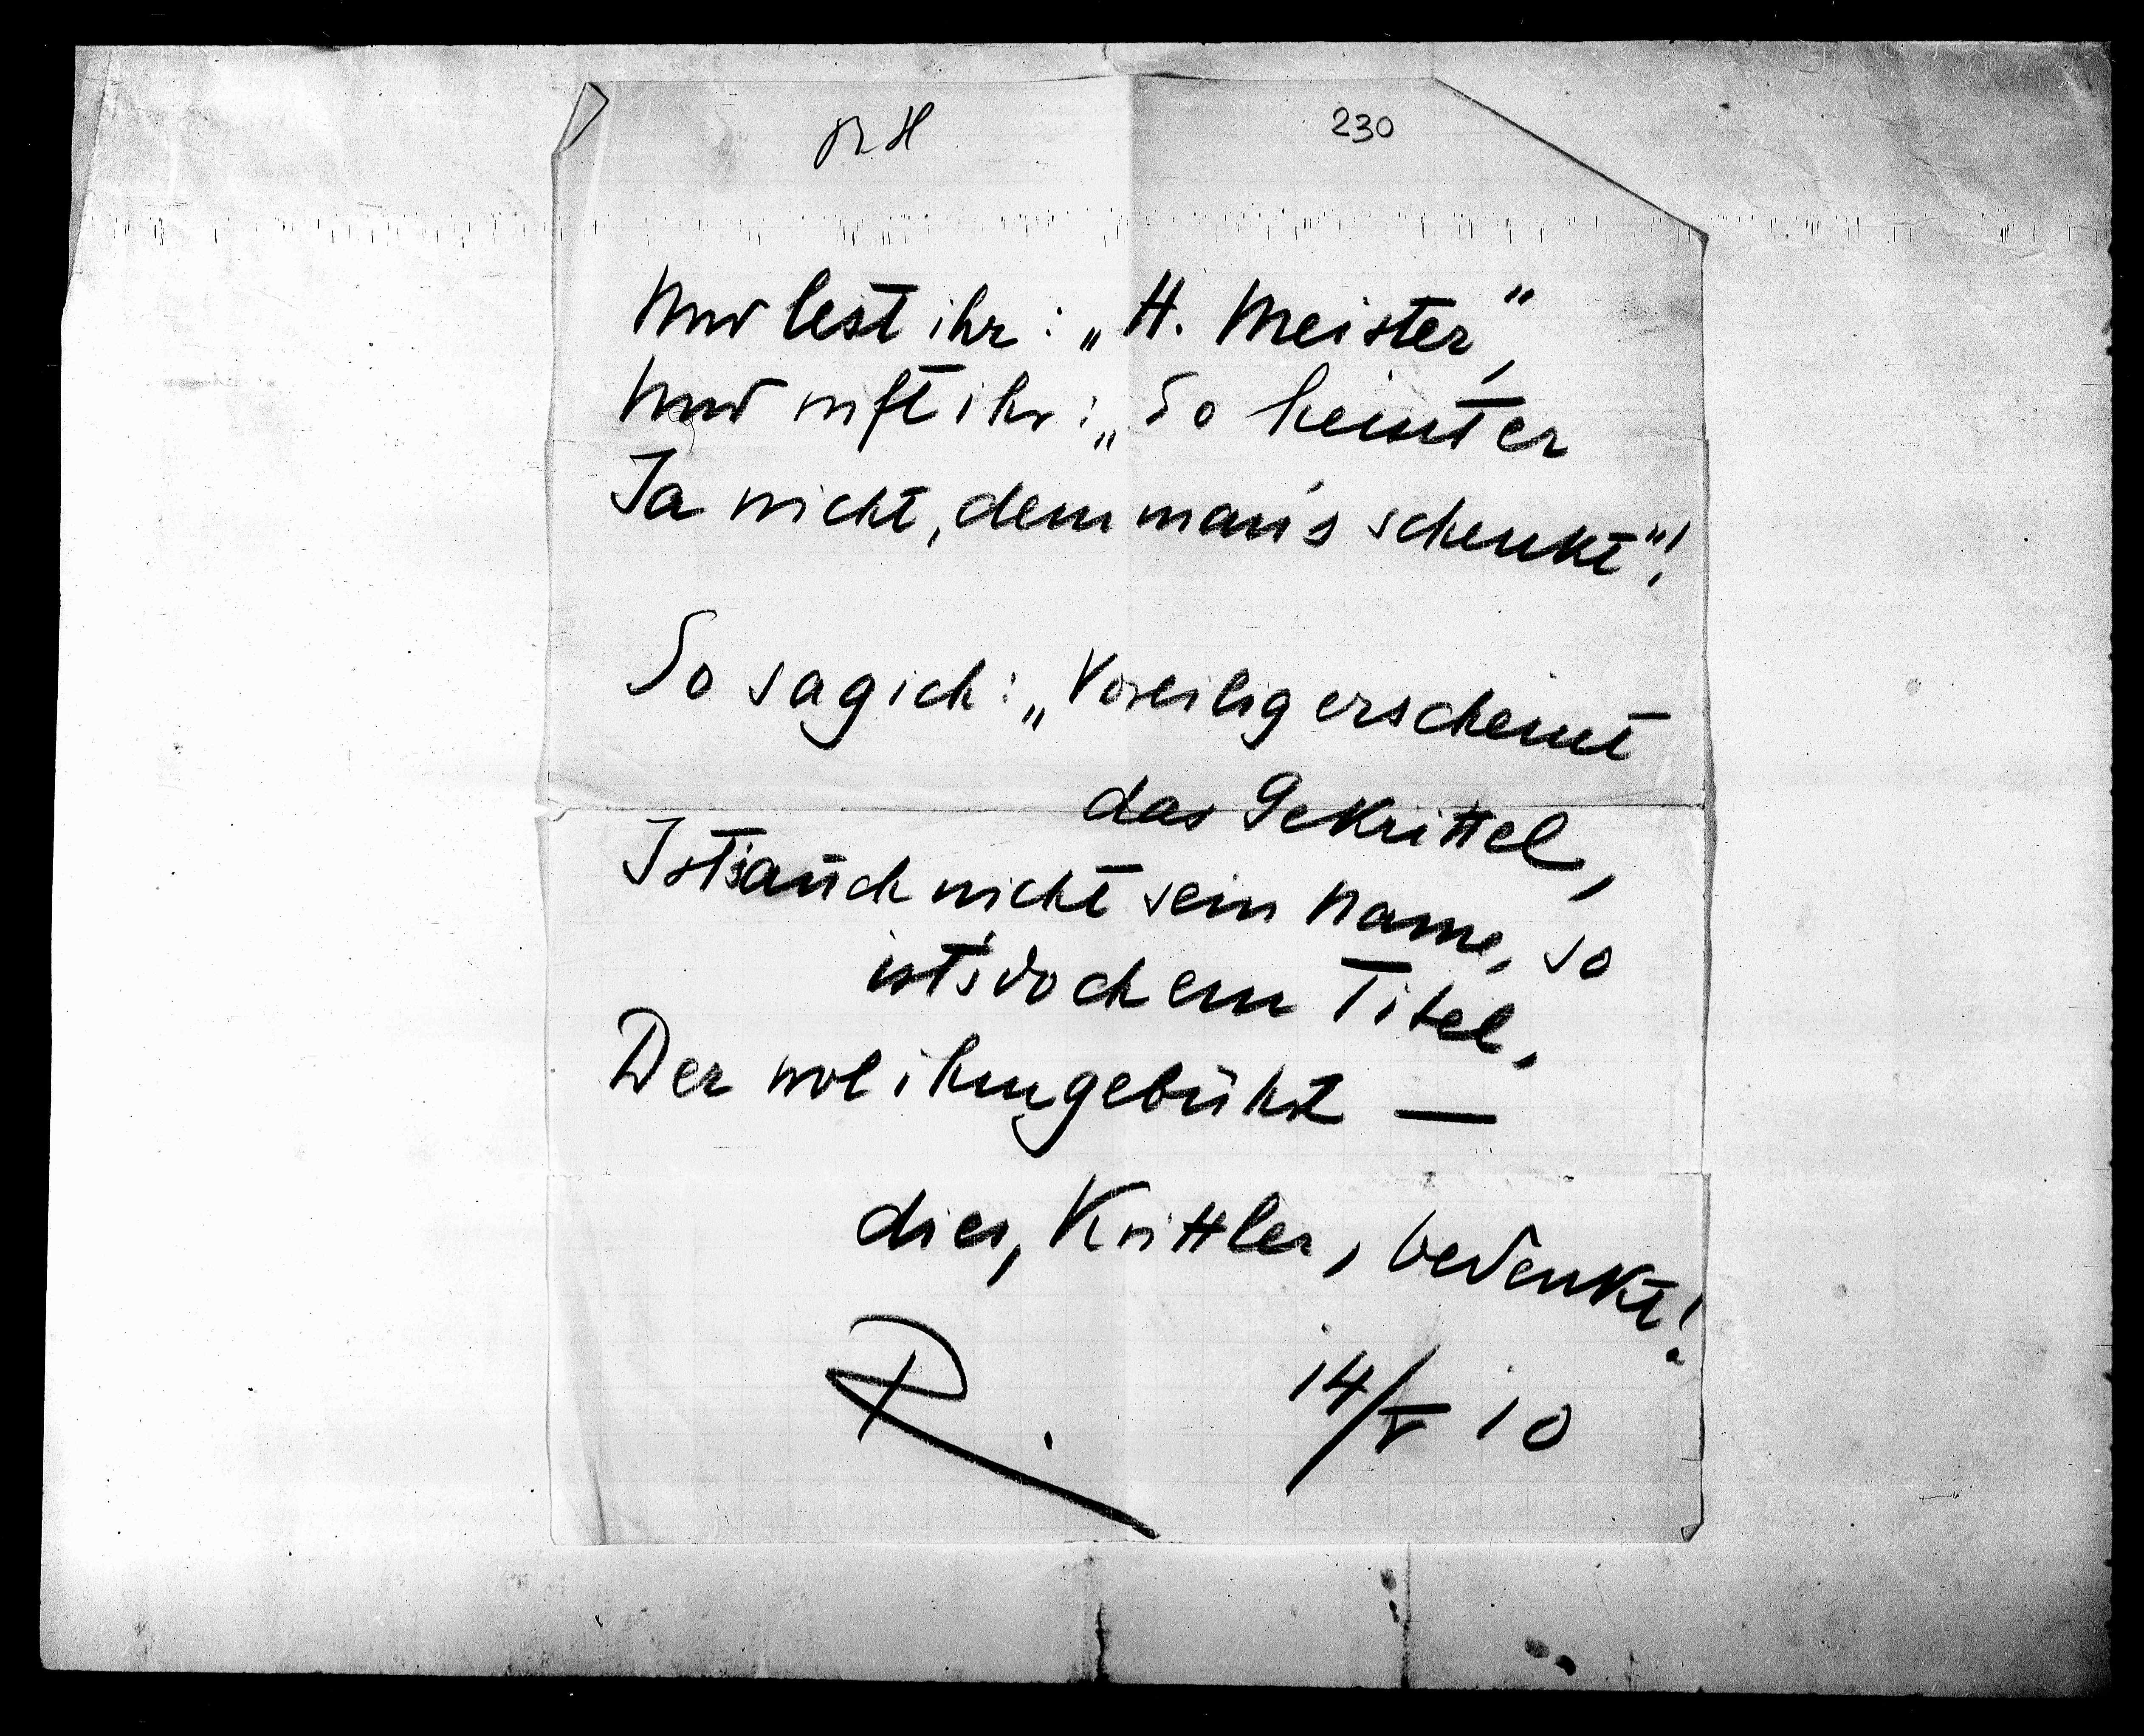 230
Und lest ihr: „H. Meister",
Und ruft ihr: „So heisst er
Ja nicht, dem man's schenkt"!
So sag ich: „Voreilig erscheint
das Gekrittel,
Ist's auch nicht sein Name, so
ist's doch ein Titel,
Der wol ihm gebührt —
dies, Krittler, bedenkt!
R. 14/V 10